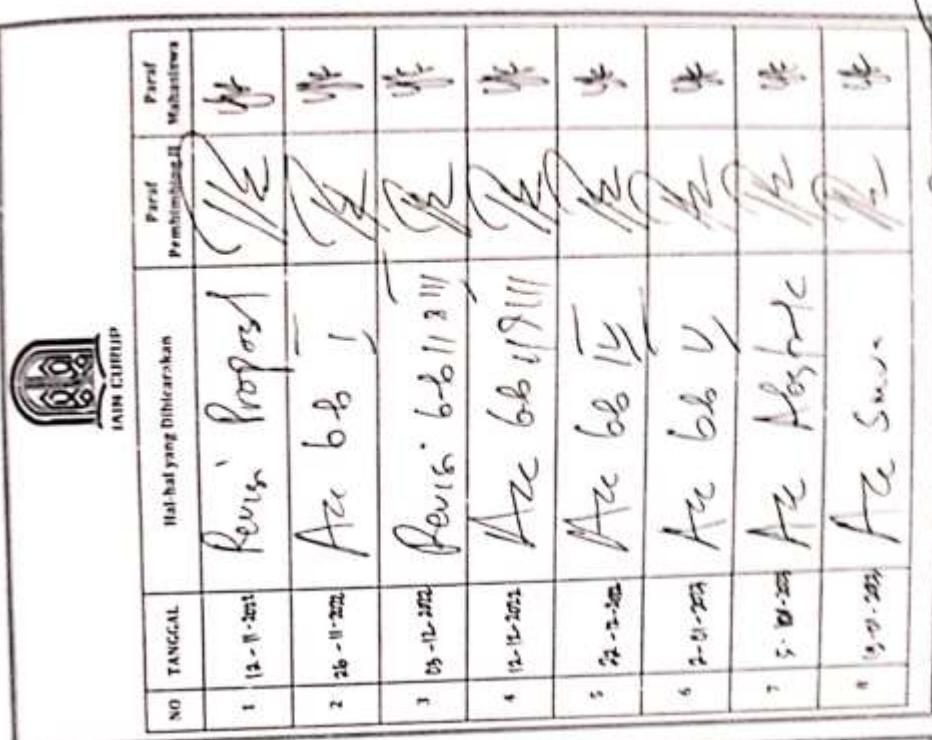 IAIN CURUP
NO TANGGAL Hal-hal yang Dibicarakan Paraf Pembimbing II Paraf Mahasiswa
1 12-11-2022 Revisi Proposal
2 26-11-2022 Acc bab I
3 03-12-2022 Revisi bab II & III
4 12-12-2022 Acc bab II & III
5 22-12-2022 Acc bab IV
6 2-01-2023 Acc bab V
7 Acc Abstrak
8 Acc